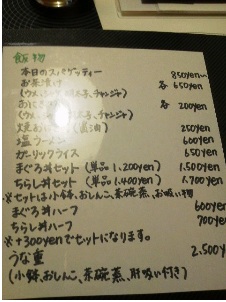 飯物
本日のスパゲッティー 850yen〜
お茶漬け 各 650yen
(ウメ、、チャンジャ)
おにぎり 各 200yen
(ウメ、、チャンジャ)
焼おにぎり(醤油) 250yen
塩ラーメン 600yen
ガーリックライス 650yen
まぐろ丼セット(単品1.200yen) 1.500yen
ちらし丼セット(単品1.400yen) 1.700yen
※セットは小鉢、おしんこ、茶碗蒸、お吸い物
まぐろ丼ハーフ 600yen
ちらし丼ハーフ 700yen
※+300yenでセットになります。
うな重 2.500yen
(小鉢、おしんこ、茶碗蒸、肝吸い付き)